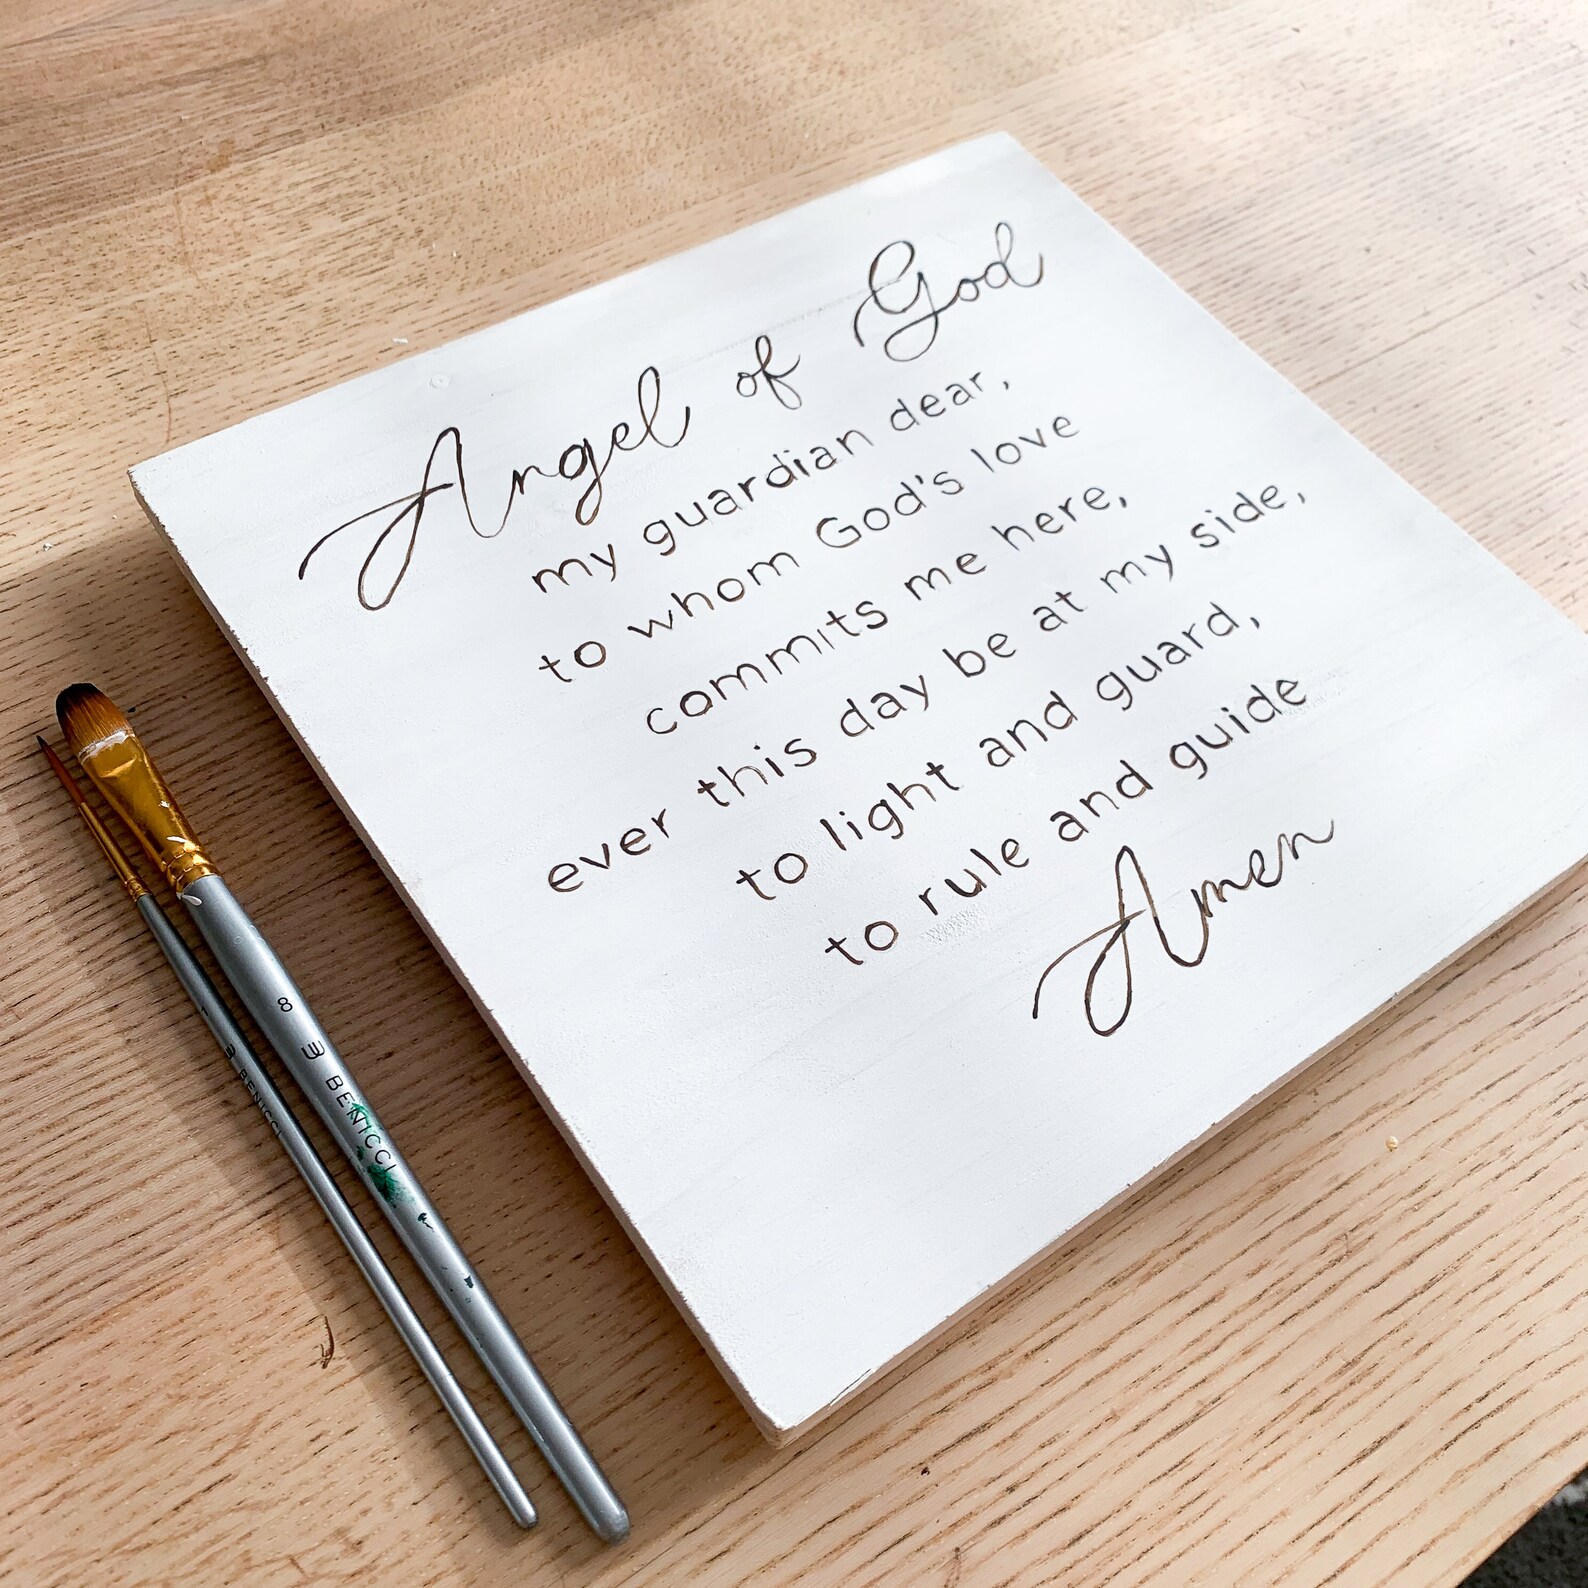 Angel of God
my guardian dear,
to whom God's love
commits me here,
ever this day be at my side,
to light and guard,
to rule and guide
Amen
8 BENICCI
1 BENICCI